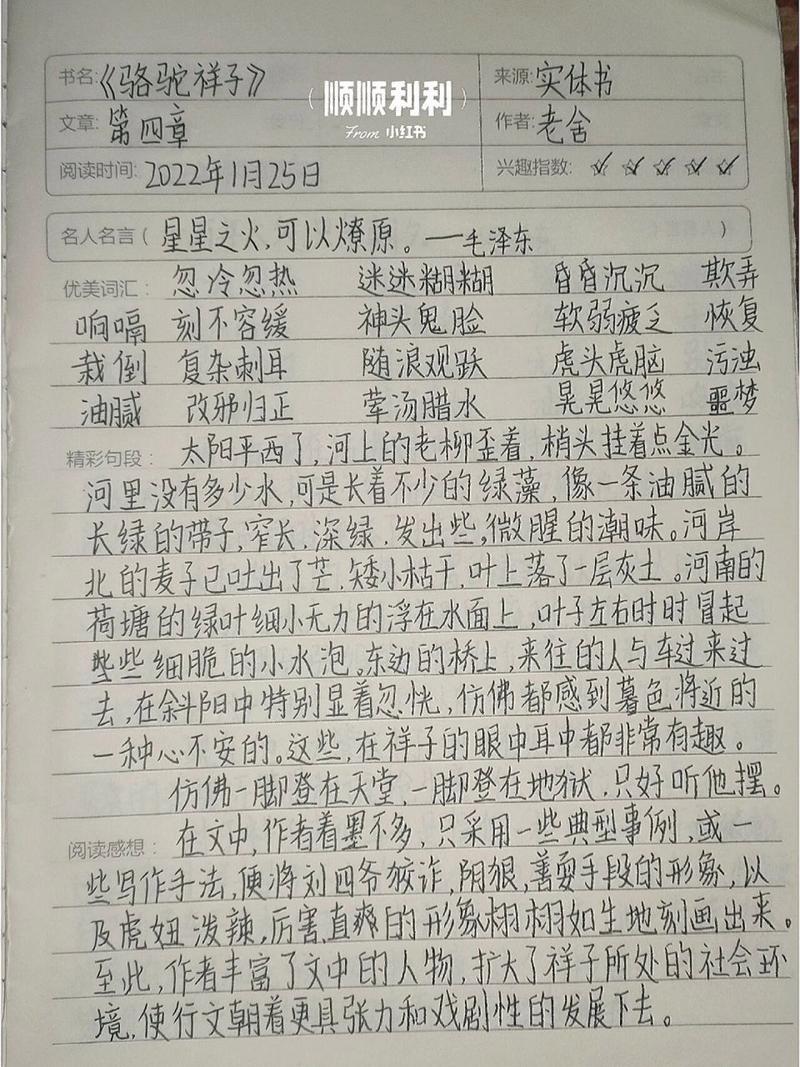 书名:《骆驼祥子》 来源:实体书
顺顺利利
From 小红书
文章:第四章 作者:老舍
阅读时间:2022年1月25日 兴趣指数:☆☆☆☆☆
名人名言(星星之火,可以燎原。——毛泽东)
优美词汇: 忽冷忽热 迷迷糊糊 昏昏沉沉 欺弄
响嗝 刻不容缓 神头鬼脸 软弱疲乏 恢复
栽倒 复杂刺耳 随浪观跃 虎头虎脑 污浊
油腻 改邪归正 荤汤腊水 晃晃悠悠 噩梦
精彩句段: 太阳平西了,河上的老柳歪着,梢头挂着点金光。
河里没有多少水,可是长着不少的绿藻,像一条油腻的
长绿的带子,窄长,深绿,发出些,微腥的潮味。河岸
北的麦子已吐出了芒,矮小枯干,叶上落了一层灰土。河南的
荷塘的绿叶细小无力的浮在水面上,叶子左右时时冒起
些些细脆的小水泡。东边的桥上,来往的人与车过来过
去,在斜阳中特别显着忽恍,仿佛都感到暮色将近的
一种心不安的。这些,在祥子的眼中耳中都非常有趣。
仿佛一脚登在天堂,一脚登在地狱,只好听他摆。
阅读感想: 在文中,作者着墨不多,只采用一些典型事例,或一
些写作手法,便将刘四爷狡诈,阴狠,善耍手段的形象,以
及虎妞泼辣,厉害,直爽的形象栩栩如生地刻画出来。
至此,作者丰富了文中的人物,扩大了祥子所处的社会环
境,使行文朝着更具张力和戏剧性的发展下去。